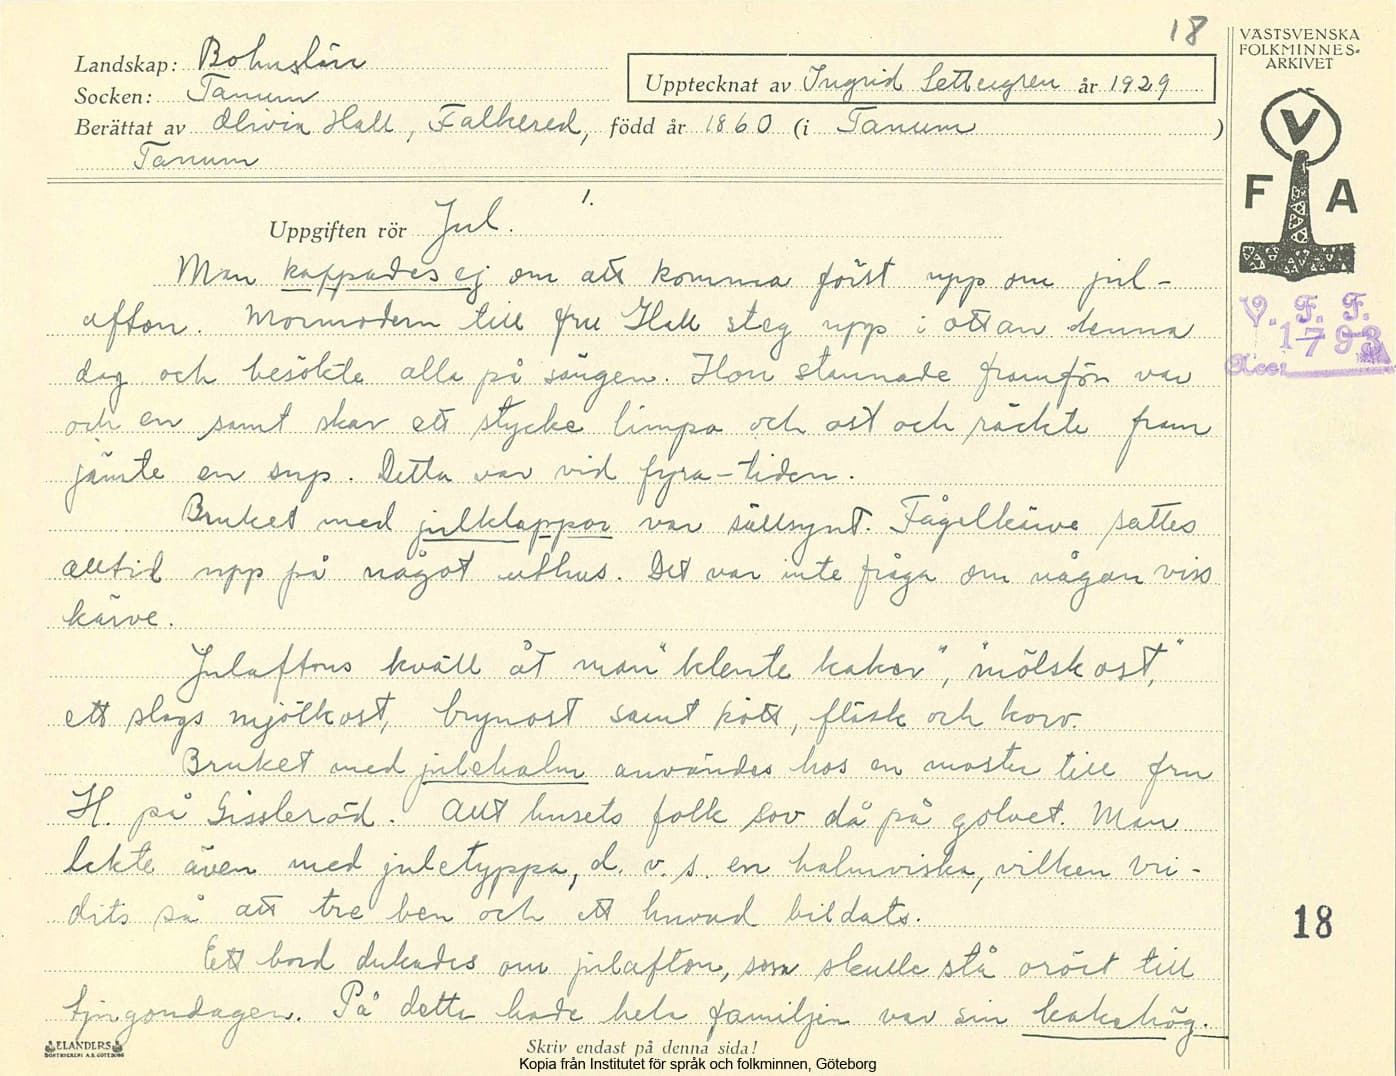 18
VÄSTSVENSKA
FOLKMINNES-
ARKIVET
Landskap: Bohuslän
Upptecknat av Ingrid Settergren år 1929
Socken: Tanum
Berättat av Olivia Hall, Falkered, född år 1860 (i Tanum )
Tanum
V
F A
V. F. F.
1793
Acc:
1.
Uppgiften rör Jul.
Man kappades ej om att komma först upp om jul-
afton. Mormodern till fru Hall steg upp i ottan denna
dag och besökte alla på sängen. Hon stannade framför var
och en samt skar ett stycke limpa och ost och räckte fram
jämte en sup. Detta var vid fyra-tiden.
Bruket med julklappar var sällsynt. Fågelkärve sattes
alltid upp på något uthus. Det var inte fråga om någon viss
kärve.
Julaftons kväll åt man "klente kakor", "mölskost",
ett slags mjölkost, brynost samt kött, fläsk och korv.
Bruket med julehalm användes hos en moster till fru
H. på Gissleröd. Allt husets folk sov då på golvet. Man
lekte även med juletyppa, d. v. s. en halmviska, vilken vri-
dits så att tre ben och ett huvud bildats.
18
Ett bord dukades om julafton, som skulle stå orört till
tjugondagen. På detta hade hela familjen var sin kakahög.
ELANDERS
BOKTRYCKERI A.B. GÖTEBORG
Skriv endast på denna sida!
Kopia från Institutet för språk och folkminnen, Göteborg